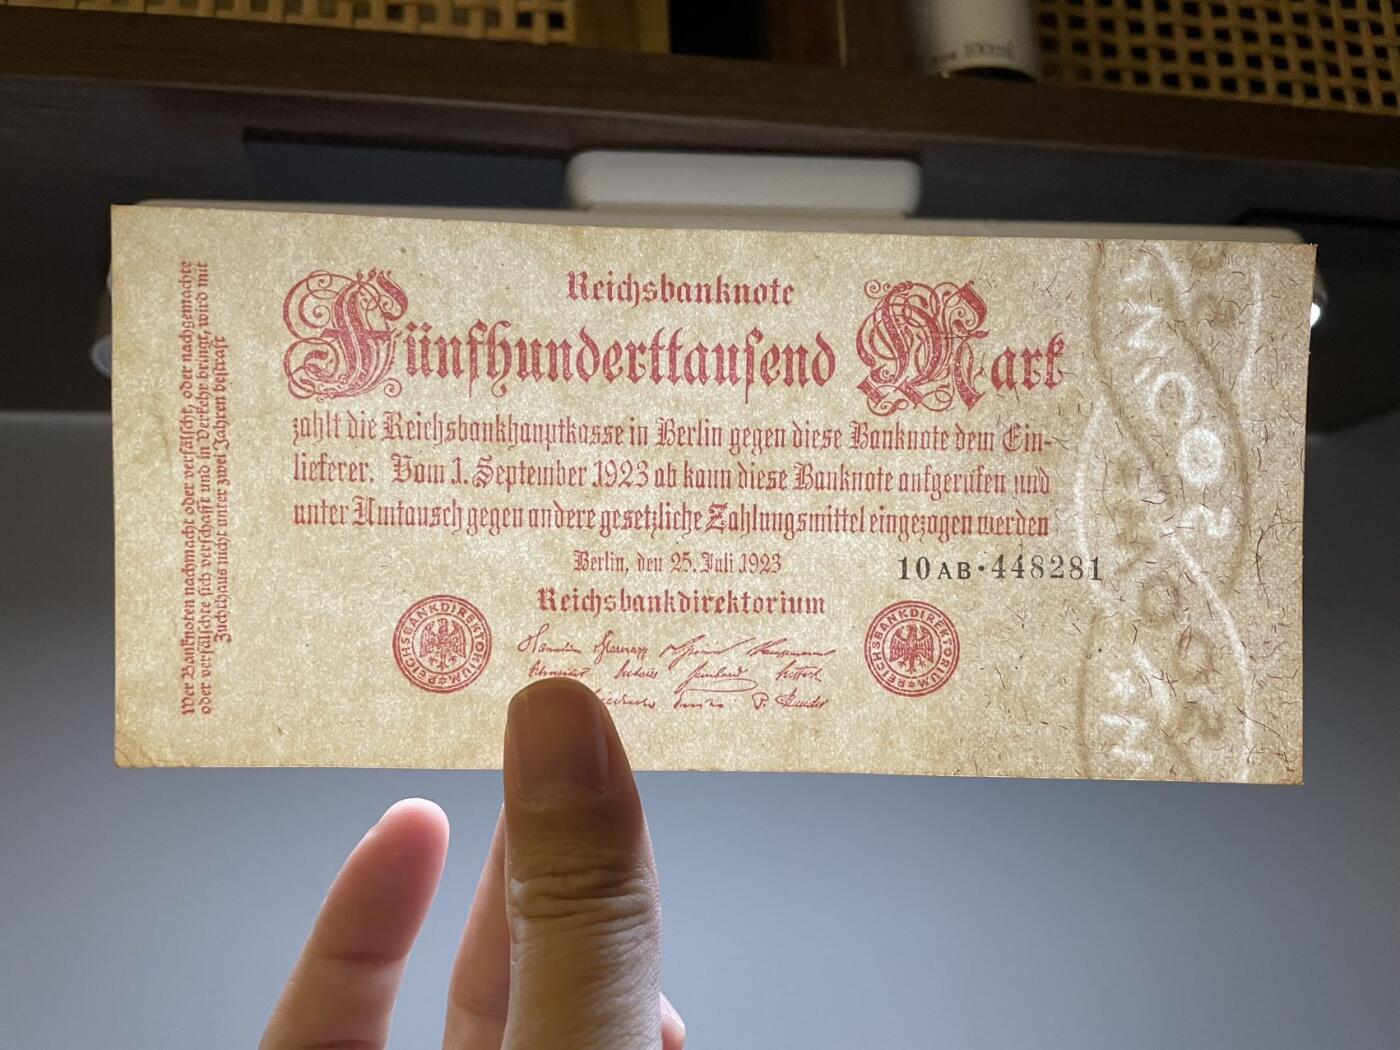 Reichsbanknote
Fünfhunderttausend Mark
zahlt die Reichsbankhauptkasse in Berlin gegen diese Banknote dem Ein-
lieferer. Vom 1. September 1923 ab kann diese Banknote aufgerufen und
unter Umtausch gegen andere gesetzliche Zahlungsmittel eingezogen werden
Berlin, den 25. Juli 1923
10AB·448281
Reichsbankdirektorium
REICHSBANKDIREKTORIUM
REICHSBANKDIREKTORIUM
Wer Banknoten nachmacht oder verfälscht, oder nachgemachte
oder verfälschte sich verschafft und in Verkehr bringt, wird mit
Zuchthaus nicht unter zwei Jahren bestraft